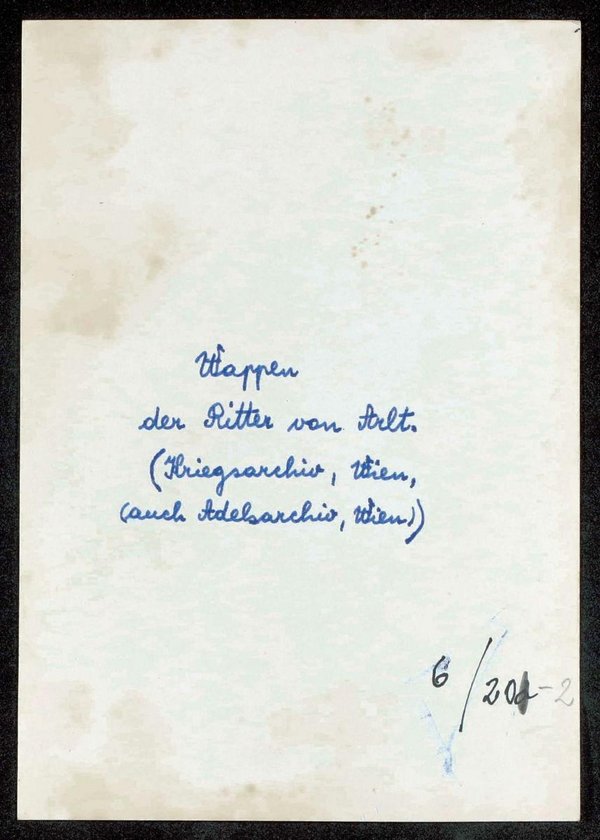 Wappen
der Ritter von Arlt.
(Kriegsarchiv, Wien,
(auch Adelsarchiv, Wien))
6/20